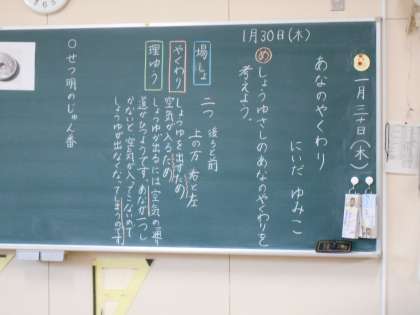 一月三十日(木)
1月30日(木)
あなのやくわり
にいだ ゆみこ
め しょうゆさしのあなのやくわりを
考えよう。
場しょ
二つ
後ろと前
上の方 右と左
やくわり
しょうゆを出すため
空気が入るため
理ゆう
しょうゆが出るには空気の通り
道がひつようです。あなが一つし
かないと空気が入ってこないので
しょうゆが出なくなってしまうのです
○せつ明のじゅん番